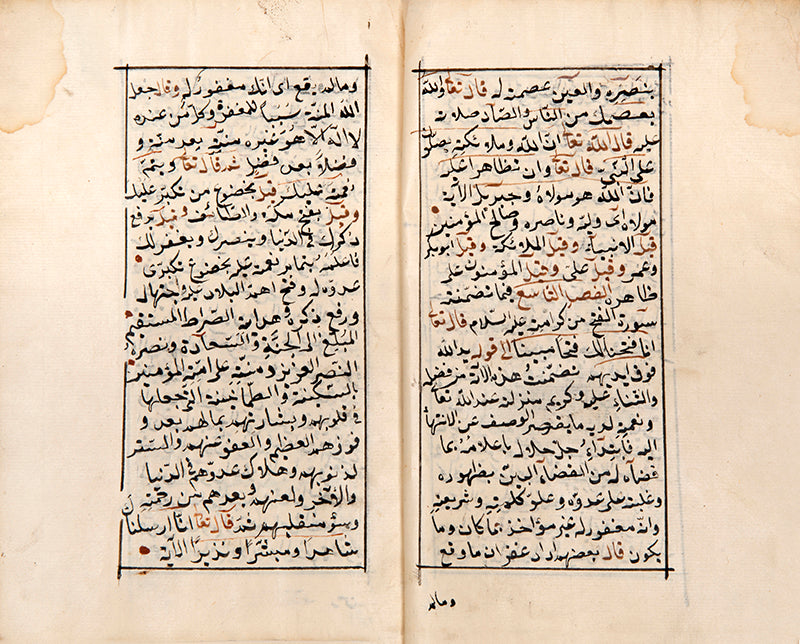 بنصره والعين عصمته له قال تعا والله
يعصمك من الناس والصاد صلاته
عليه قال الله تعا ان الله وملائكته يصلون
على النبي قال تعا وان تظاهرا عليه
فان الله هو مولاه وجبريل الآية
مولاه اى وليه وناصره وصالح المؤمنين
قيل الانبياء وقيل الملائكة وقيل ابوبكر
وعمر وقيل على وقيل المؤمنون على
ظاهره الفصل التاسع فيما تضمنته
سورة الفتح من كرامته عليه السلام قال تعا
انا فتحنا لك فتحا مبينا الى قوله يد الله
فوق ايديهم تضمنت هذه الآية من فضله
والثناء عليه وكريم منزلته عند الله تعا
ونعمته لديه ما يقصر الوصف عن الانتهاء
اليه فابتداء جل جلاله باعلامه بما
قضاه له من القضاء البين بظهوره
وغلبته على عدوه وعلو كلمته وشريعته
وانه مغفور له غير مؤاخذ بما كان وما
يكون قال بعضهم اراد غفران ما وقع
ومالم
ومالم يقع اى انك مغفور له وقال جعل
الله المنة سببا للمغفرة وكل من عنده
لا اله الا هو غيره منة بعد منة و
فضلا بعد فضل ثم قال تعا ويتم
نعمته عليك قيل بخضوع من تكبر عليك
وقيل بفتح مكة والطائف وقيل يرفع
ذكرك فى الدنيا وينصرك ويغفر لك
فاعلمه بتمام نعمته عليه بخضوع متكبرى
عدوه له وفتح اهم البلاد عليه واحبها له
ورفع ذكره وهدايته الصراط المستقيم
المبلغ الى الجنة والسعادة ونصره
النصر العزيز ومنته على امته المؤمنين
بالسكينة والطمانينة التى جعلها
فى قلوبهم وبشارتهم بمالهم بعد و
فوزهم العظيم والعفو عنهم والستر
لذنوبهم وهلاك عدوهم فى الدنيا
والآخرة ولعنهم وبعدهم من رحمته
وسوء منقلبهم ثم قال تعا انا ارسلناك
شاهدا ومبشرا ونذيرا الآية